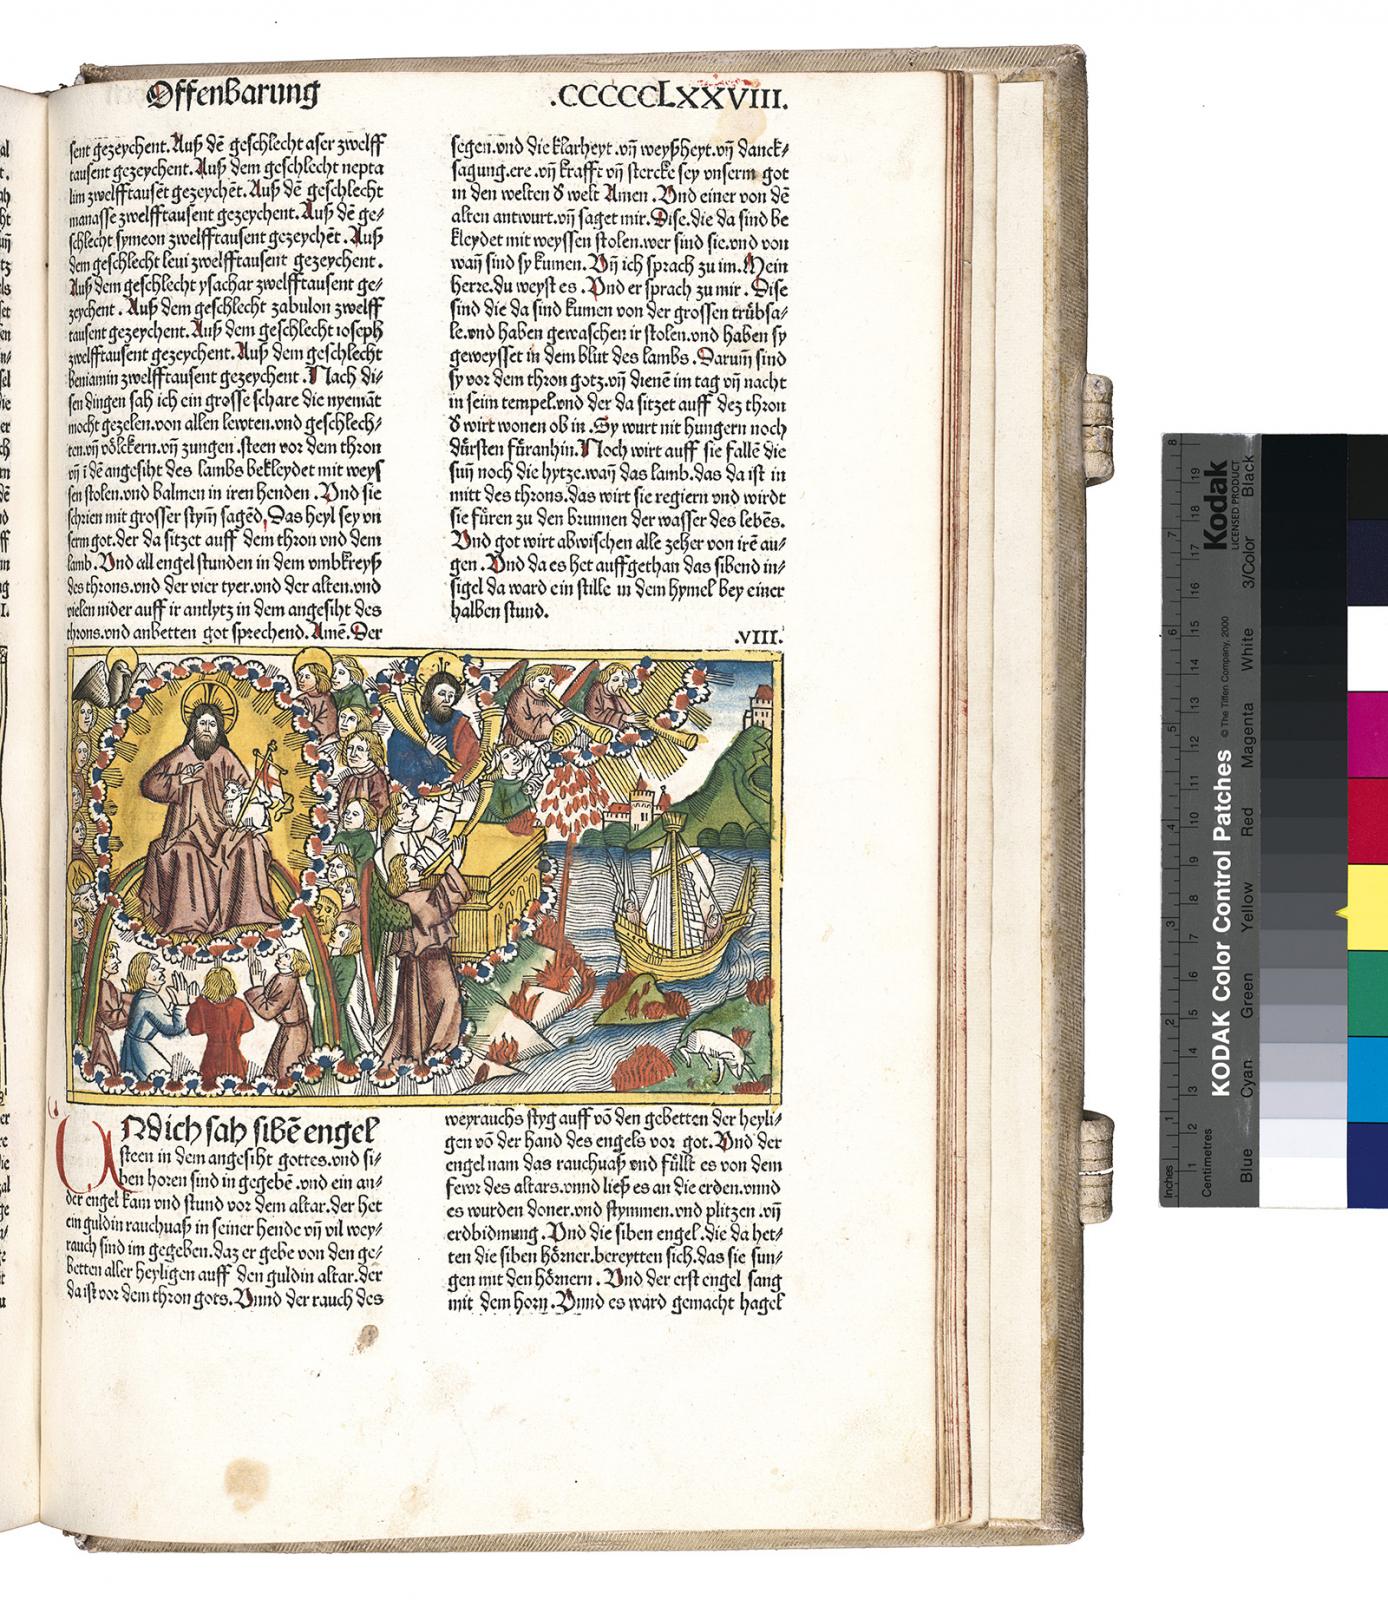 Offenbarung
.CCCCCLXXVIII.
sent gezeychent. Auß dē geschlecht aser zwelff
tausent gezeychent. Auß dem geschlecht nepta
lim zwelfftausēt gezeychēt. Auß dē geschlecht
manasse zwelfftausent gezeychent. Auß dē ge⸗
schlecht symeon zwelfftausent gezeychēt. Auß
dem geschlecht leui zwelfftausent gezeychent.
Auß dem geschlecht ysachar zwelfftausent ge⸗
zeychent. Auß dem geschlecht zabulon zwelff
tausent gezeychent. Auß dem geschlecht ioseph
zwelfftausent gezeychent. Auß dem geschlecht
beniamin zwelfftausent gezeychent. Nach di⸗
sen dingen sah ich ein grosse schare die nyemāt
mocht gezelen. von allen lewten. vnd geschlech⸗
ten. vn̄ völckern. vn̄ zungen. steen vor dem thron
vn̄ i dē angesiht des lambs bekleydet mit weys
sen stolen. vnd balmen in iren henden. Vnd sie
schrien mit grosser stym̄ sagēd, Das heyl sey vn
serm got. der da sitzet auff dem thron vnd dem
lamb. Vnd all engel stunden in dem vmbkreyß
des throns. vnd der vier tyer. vnd der alten. vnd
vielen nider auff ir antlytz in dem angesiht des
throns. vnd anbetten got sprechend. Amē. Der
segen. vnd die klarheyt. vn̄ weyßheyt. vn̄ danck⸗
sagung. ere. vn̄ krafft vn̄ stercke sey vnserm got
in den welten d̕ welt Amen. Vnd einer von dē
alten antwurt. vn̄ saget mir. Dise. die da sind be
kleydet mit weyssen stolen. wer sind sie. vnd von
wan̄ sind sy kumen. Vn̄ ich sprach zu im. Mein
herre. du weyst es. Vnd er sprach zu mir. Dise
sind die da sind kumen von der grossen trübsa⸗
le. vnd haben gewaschen ir stolen. vnd haben sy
geweysset in dem blut des lambs. Darum̄ sind
sy vor dem thron gotz. vn̄ dienē im tag vn̄ nacht
in seim tempel. vnd der da sitzet auff dez thron
d̕ wirt wonen ob in. Sy wurt nit hungern noch
dürsten füranhin. Noch wirt auff sie fallē die
sun̄ noch die hytze. wan̄ das lamb. das da ist in
mitt des throns. das wirt sie regiern vnd wirdt
sie füren zu den brunnen der wasser des lebēs.
Vnd got wirt abwischen alle zeher von irē au⸗
gen. Vnd da es het auffgethan das sibend in⸗
sigel da ward ein stille in dem hymel bey einer
halben stund.
.VIII.
UNd ich sah sibē engel
steen in dem angesiht gottes. vnd si⸗
ben horen sind in gegebē. vnd ein an⸗
der engel kam vnd stund vor dem altar. der het
ein guldin rauchuaß in seiner hende vn̄ vil wey⸗
rauch sind im gegeben. daz er gebe von den ge⸗
betten aller heyligen auff den guldin altar. der
da ist vor dem thron gots. Vnnd der rauch des
weyrauchs styg auff vō den gebetten der heyli⸗
gen vō der hand des engels vor got. Vnd der
engel nam das rauchuaß vnd füllt es von dem
fewr des altars. vnnd ließ es an die erden. vnnd
es wurden doner. vnd stymmen. vnd plitzen. vn̄
erdbidmung. Vnd die siben engel. die da het⸗
ten die siben hörner. bereytten sich. das sie sun⸗
gen mit den hörnern. Vnd der erst engel sang
mit dem horn. Vnnd es ward gemacht hagel
Kodak
LICENSED PRODUCT
KODAK Color Control Patches
© The Tiffen Company, 2000
Inches
Centimetres
Blue
Cyan
Green
Yellow
Red
Magenta
White
3/Color
Black